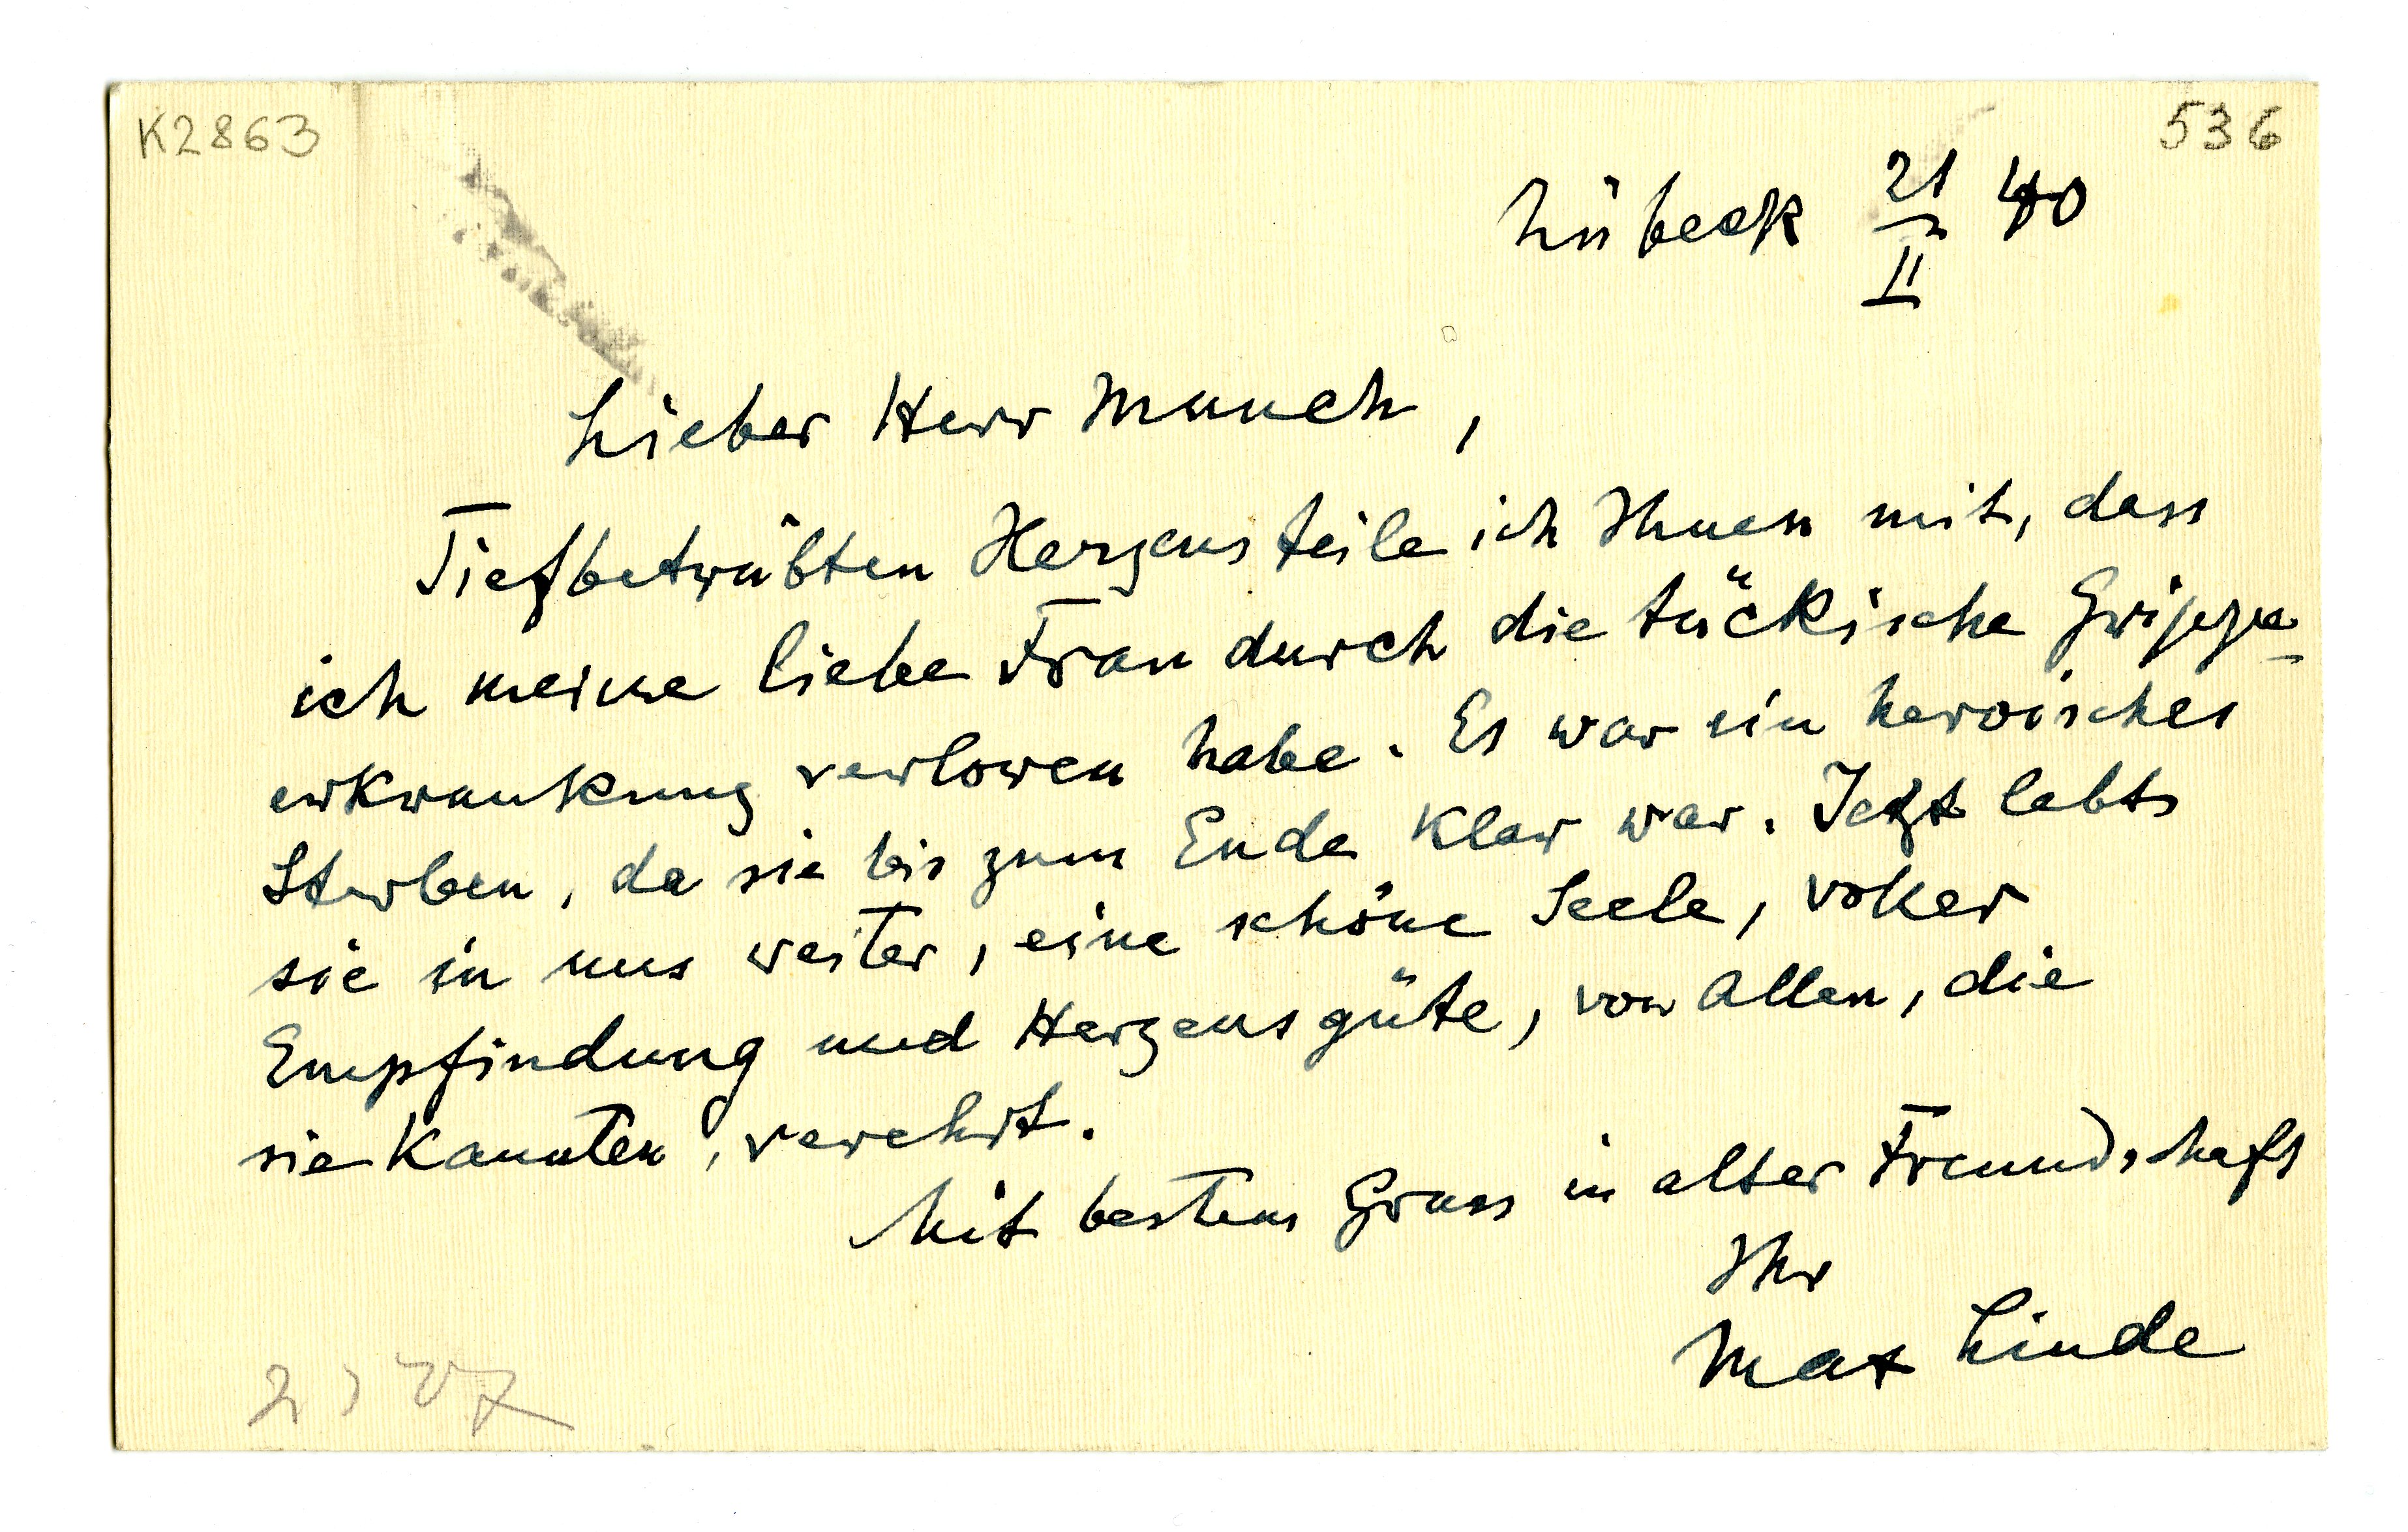 K2863
536
Lübeck 21/II 40
Lieber Herr Munch,
Tiefbetrübten Herzens teile ich Ihnen mit, dass
ich meine liebe Frau durch die tückische Grippe-
erkrankung verloren habe. Es war ein heroisches
Sterben, da sie bis zum Ende klar war. Jetzt lebts
sie in uns weiter, eine schöne Seele, voller
Empfindung und Herzensgüte, von Allen, die
sie kannten, verehrt.
Mit bestem Gruss in alter Freundschaft
Ihr
Max Linde